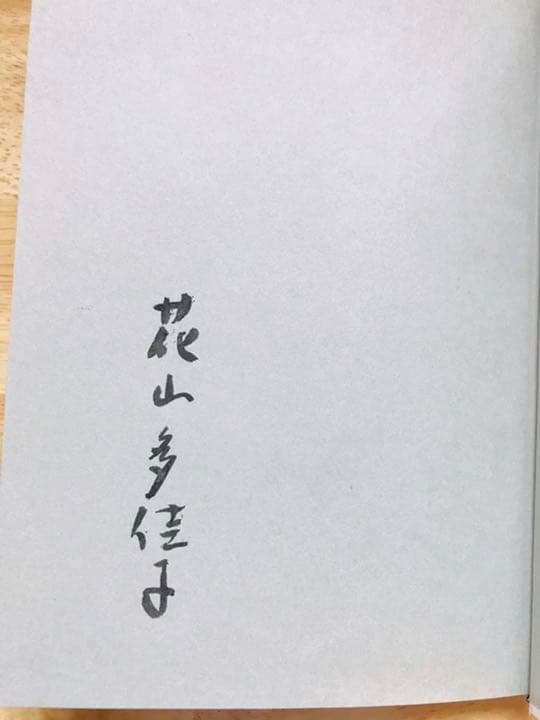 花山多佳子